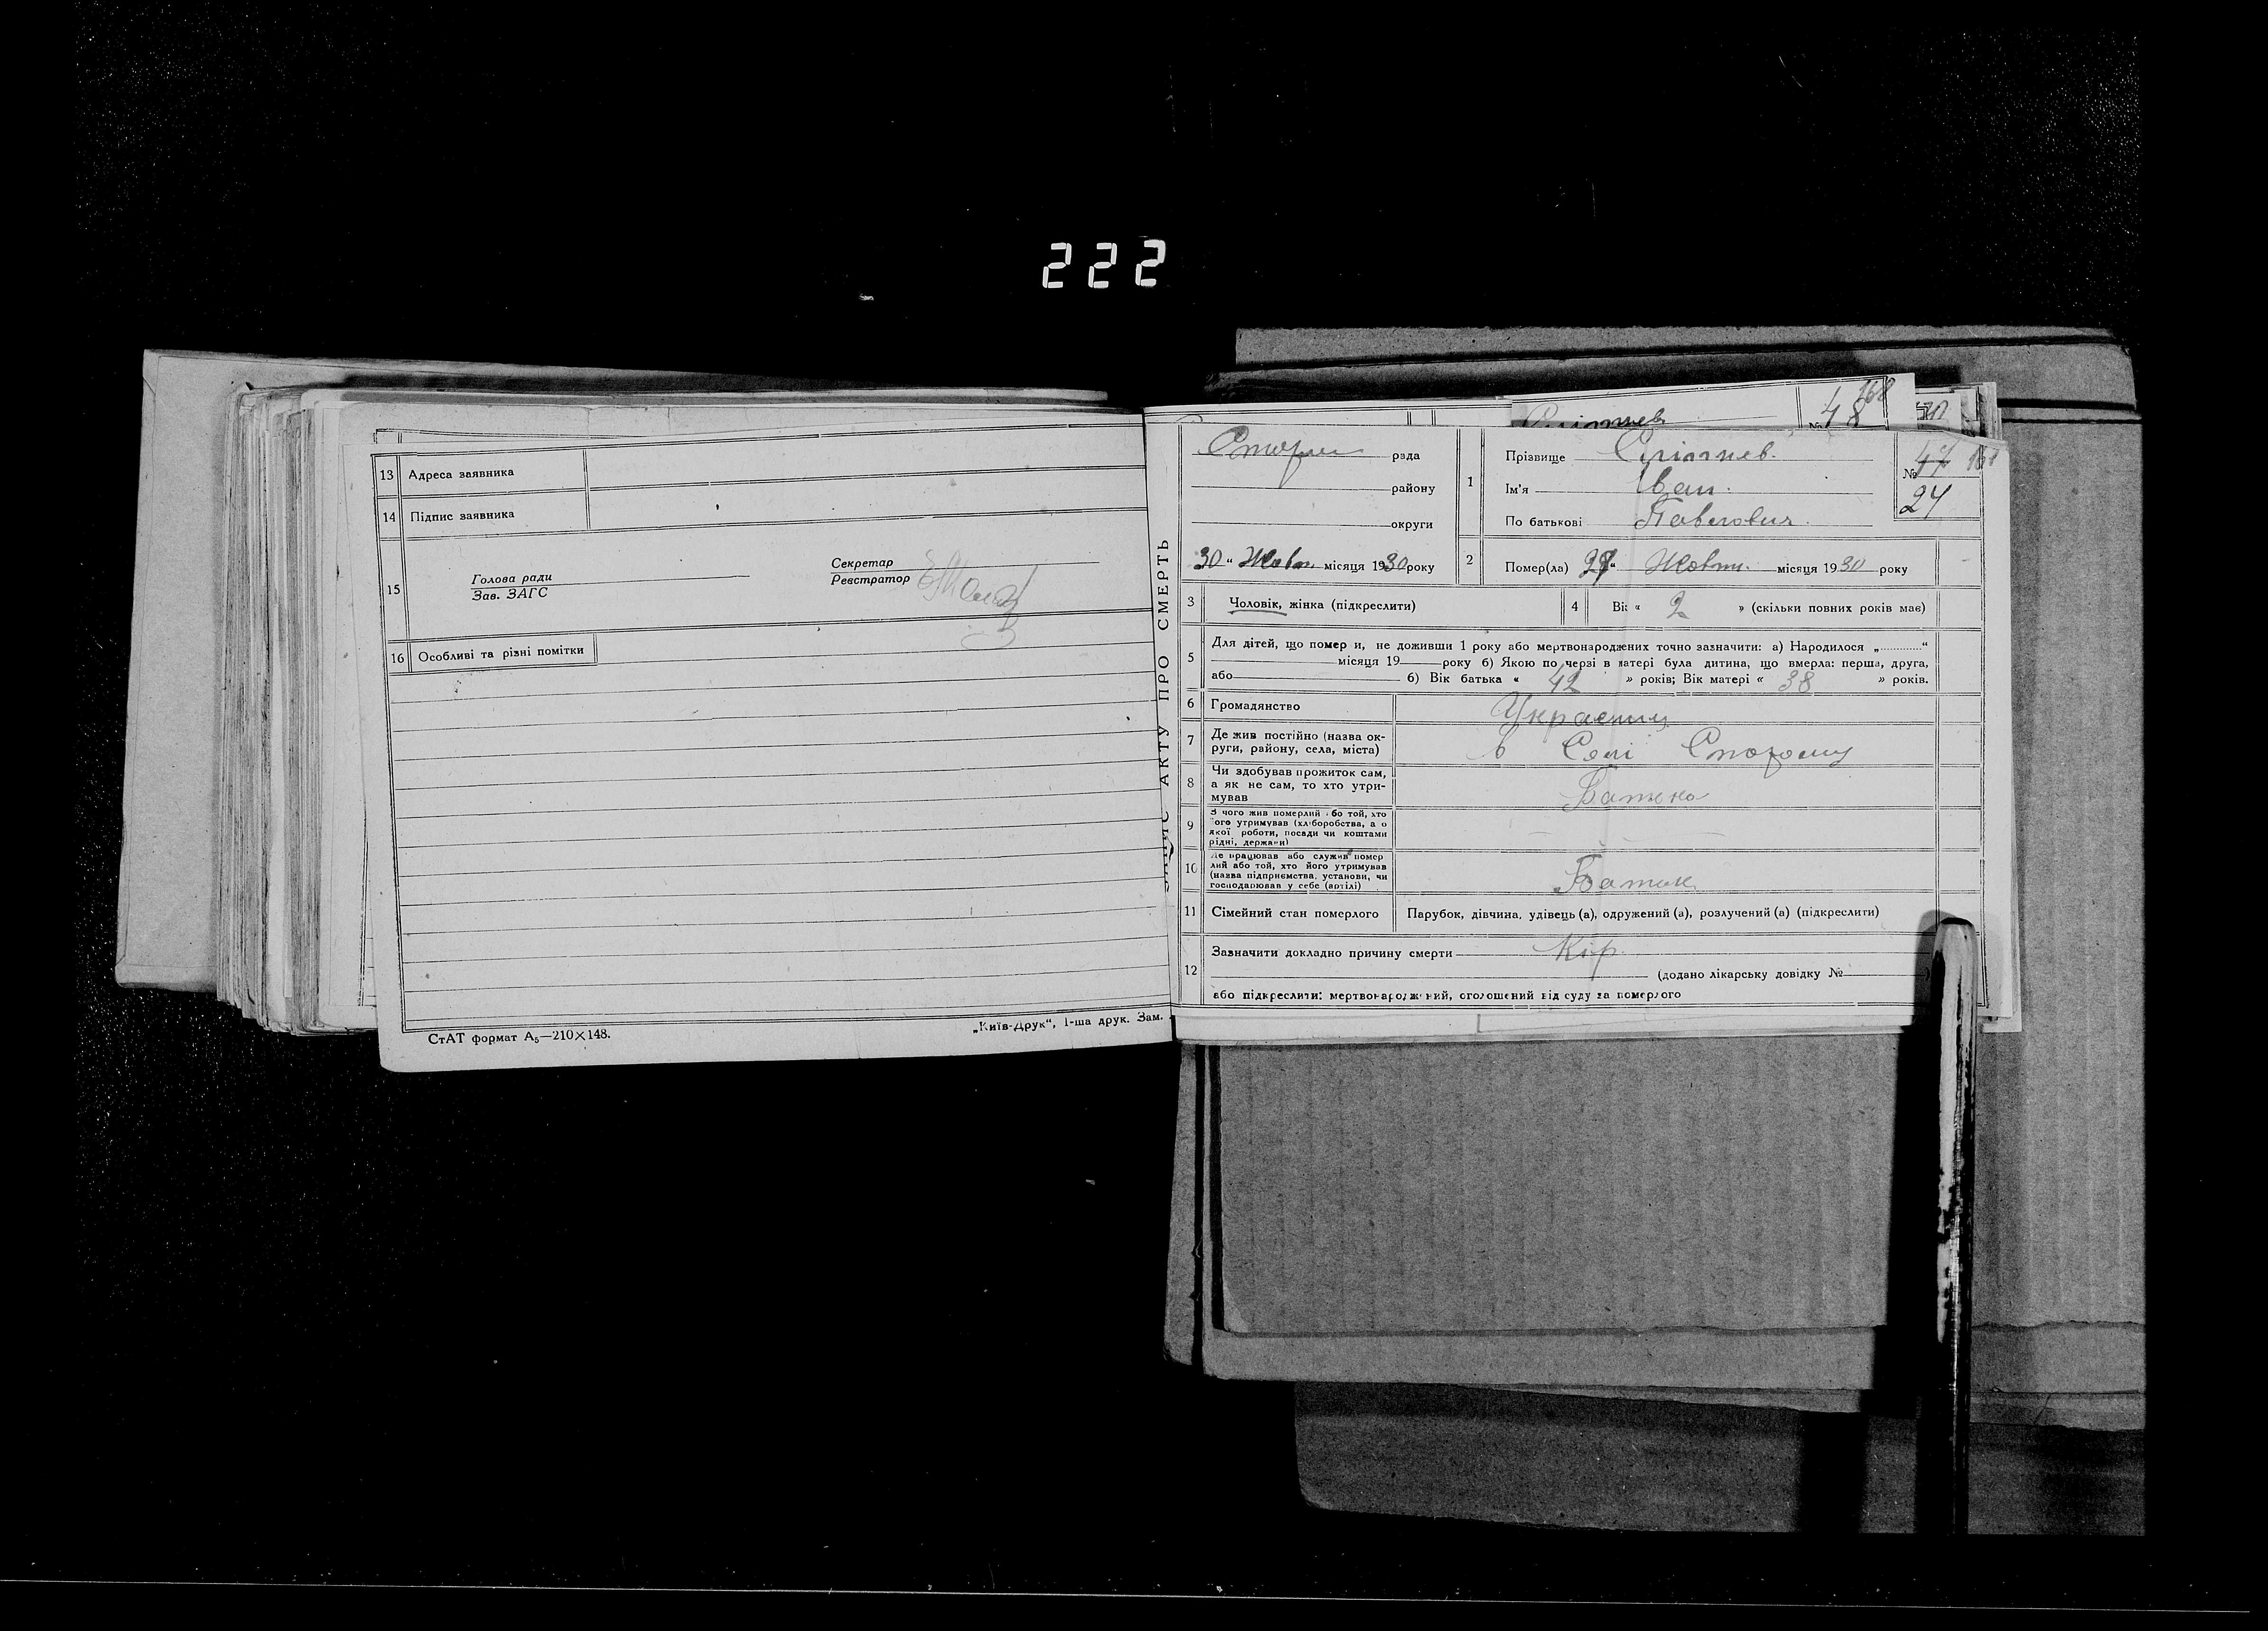 222
13 Адреса заявника
14 Підпис заявника
15
Голова ради
Зав. ЗАГС
Секретар
Реєстратор
16 Особливі та різні помітки
СтАТ формат А₅—210×148.
„Київ-Друк“, 1-ша друк. Зам.
АКТУ ПРО СМЕРТЬ
48 168
рада
району
округи
30 “ Жовтн місяця 1930 року
1
Прізвище
Ім'я Іван.
По батькові Павлович.
№ 47
24
2 Помер(ла) Жовтн. місяця 1930 року
3 Чоловік, жінка (підкреслити)
4 Вік « 2 » (скільки повних років має)
5 Для дітей, що помер и, не доживши 1 року або мертвонароджених точно зазначити: а) Народилося „............“
місяця 19 року б) Якою по черзі в матері була дитина, що вмерла: перша, друга,
або б) Вік батька « 42 » років; Вік матері « 38 » років.
6 Громадянство
7 Де жив постійно (назва ок-
руги, району, села, міста) в Селі
8 Чи здобував прожиток сам,
а як не сам, то хто утри-
мував Батько
9 З чого жив померлий або той, хто
його утримував (хліборобства, а о
якої роботи, посади чи коштами
рідні, держави)
10 Де працював або служив помер
лий або той, хто його утримував
(назва підприємства, установи, чи
господарював у себе (артілі) Батьк
11 Сімейний стан померлого Парубок, дівчина, удівець (а), одружений (а), розлучений (а) (підкреслити)
12 Зазначити докладно причину смерти Кір
(додано лікарську довідку № )
або підкреслити: мертвонароджений, оголошений від суду за померлого